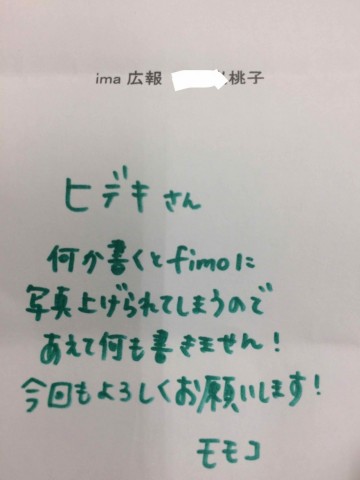 ima 広報 桃子
ヒデキさん
何か書くとfimoに
写真上げられてしまうので
あえて何も書きません!
今回もよろしくお願いします!
モモコ